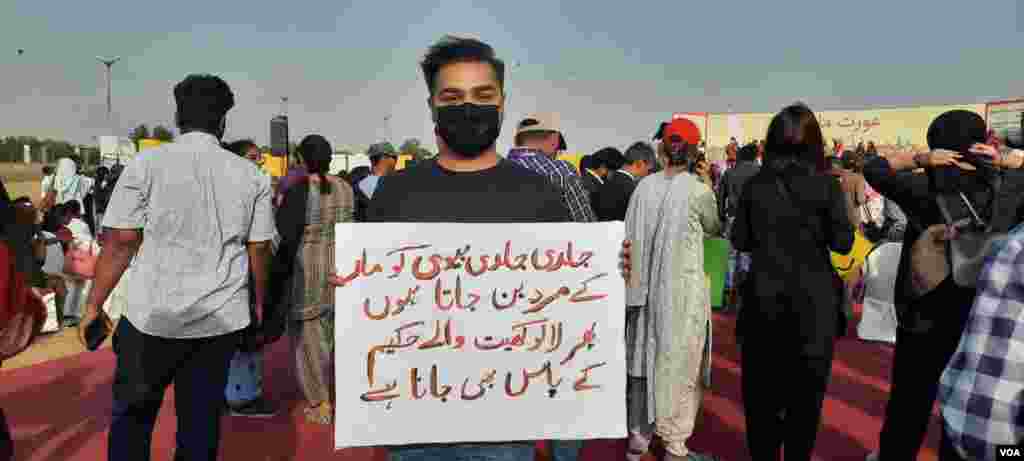 عورت مارچ
جلدی جلدی بیوی کو مار
کے مرد بن جاتا ہوں
پھر لالو کھیت والے حکیم
کے پاس بھی جانا ہے
VOA